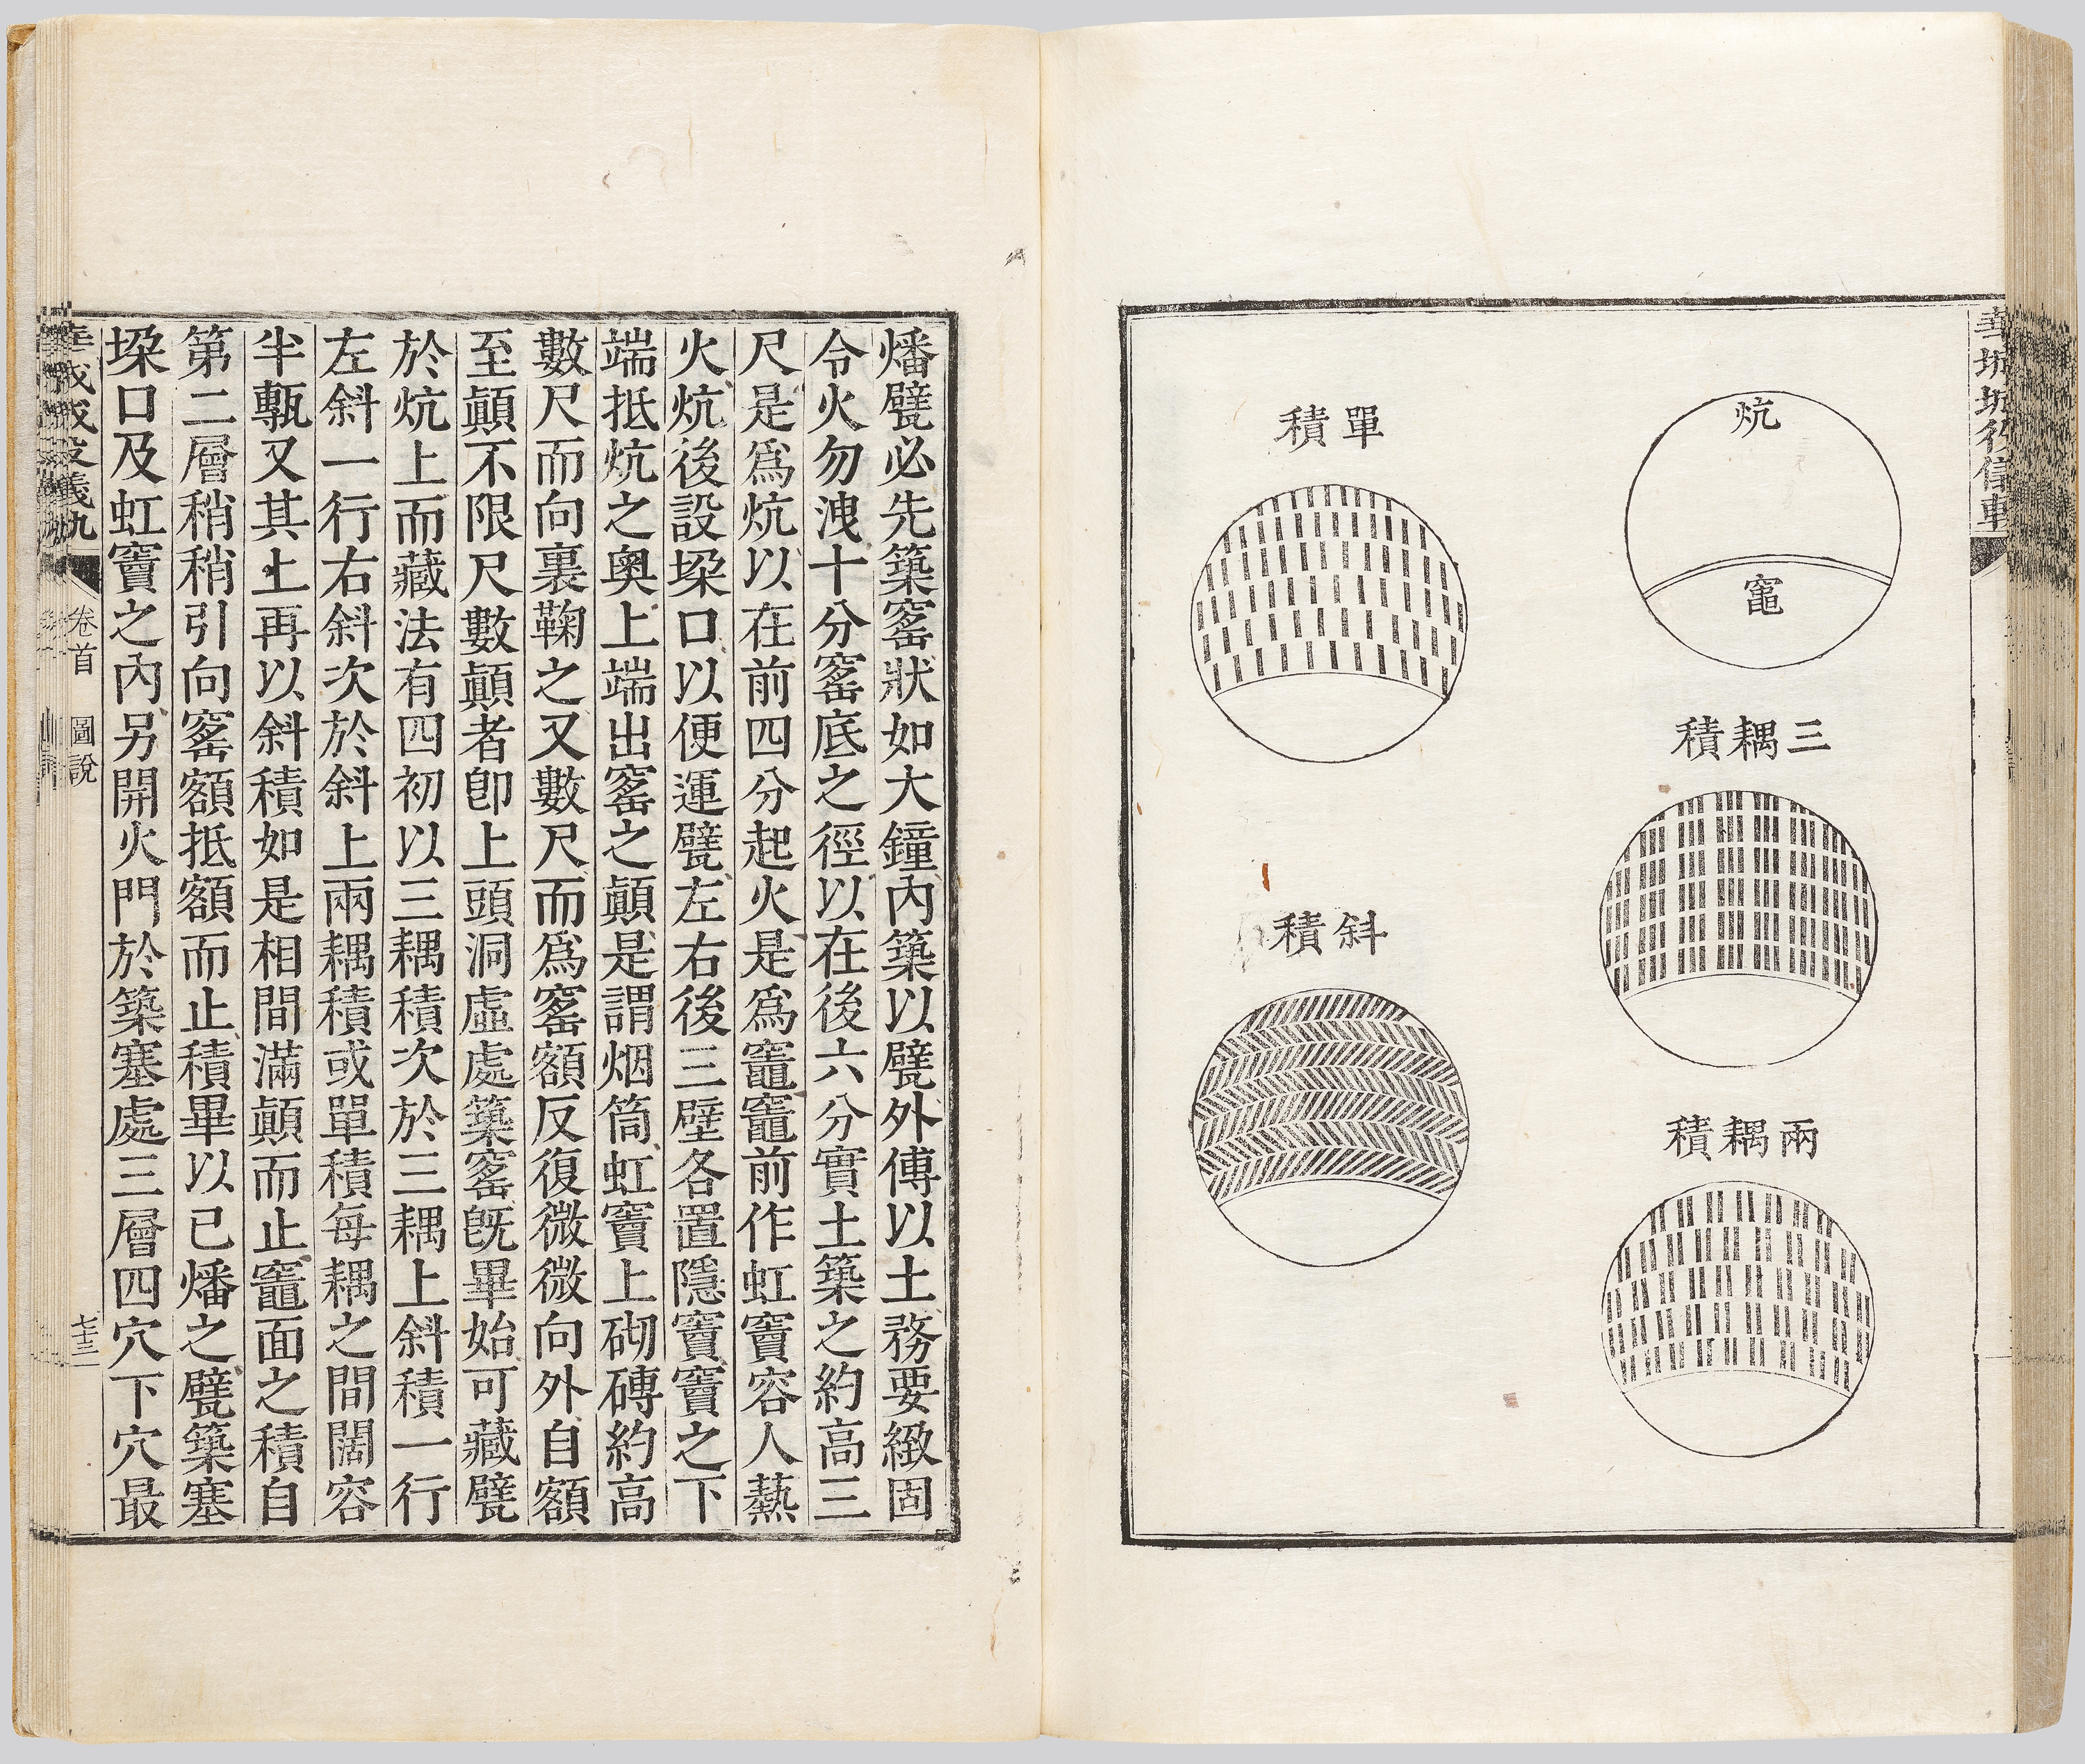 炕
竈
三耦積
兩耦積
單積
斜積
燔甓必先築窰狀如大鐘內築以甓外傅以土務要緻固
令火勿洩十分窰底之徑以在後六分實土築之約高三
尺是爲炕以在前四分起火是爲竈竈前作虹竇容人爇
火炕後設垜口以便運甓左右後三壁各置隱竇竇之下
端抵炕之奧上端出窰之顚是謂烟筒虹竇上砌磚約高
數尺而向裏鞠之又數尺而爲窰額反復微微向外自額
至顚不限尺數顚者卽上頭洞虛處築窰旣畢始可藏甓
於炕上而藏法有四初以三耦積次於三耦上斜積一行
左斜一行右斜次於斜上兩耦積或單積每耦之間闊容
半甎又其上再以斜積如是相間滿顚而止竈面之積自
第二層稍稍引向窰額抵額而止積畢以已燔之甓築塞
垜口及虹竇之內另開火門於築塞處三層四穴下穴最
華城城役儀軌 卷首 圖說 七十三